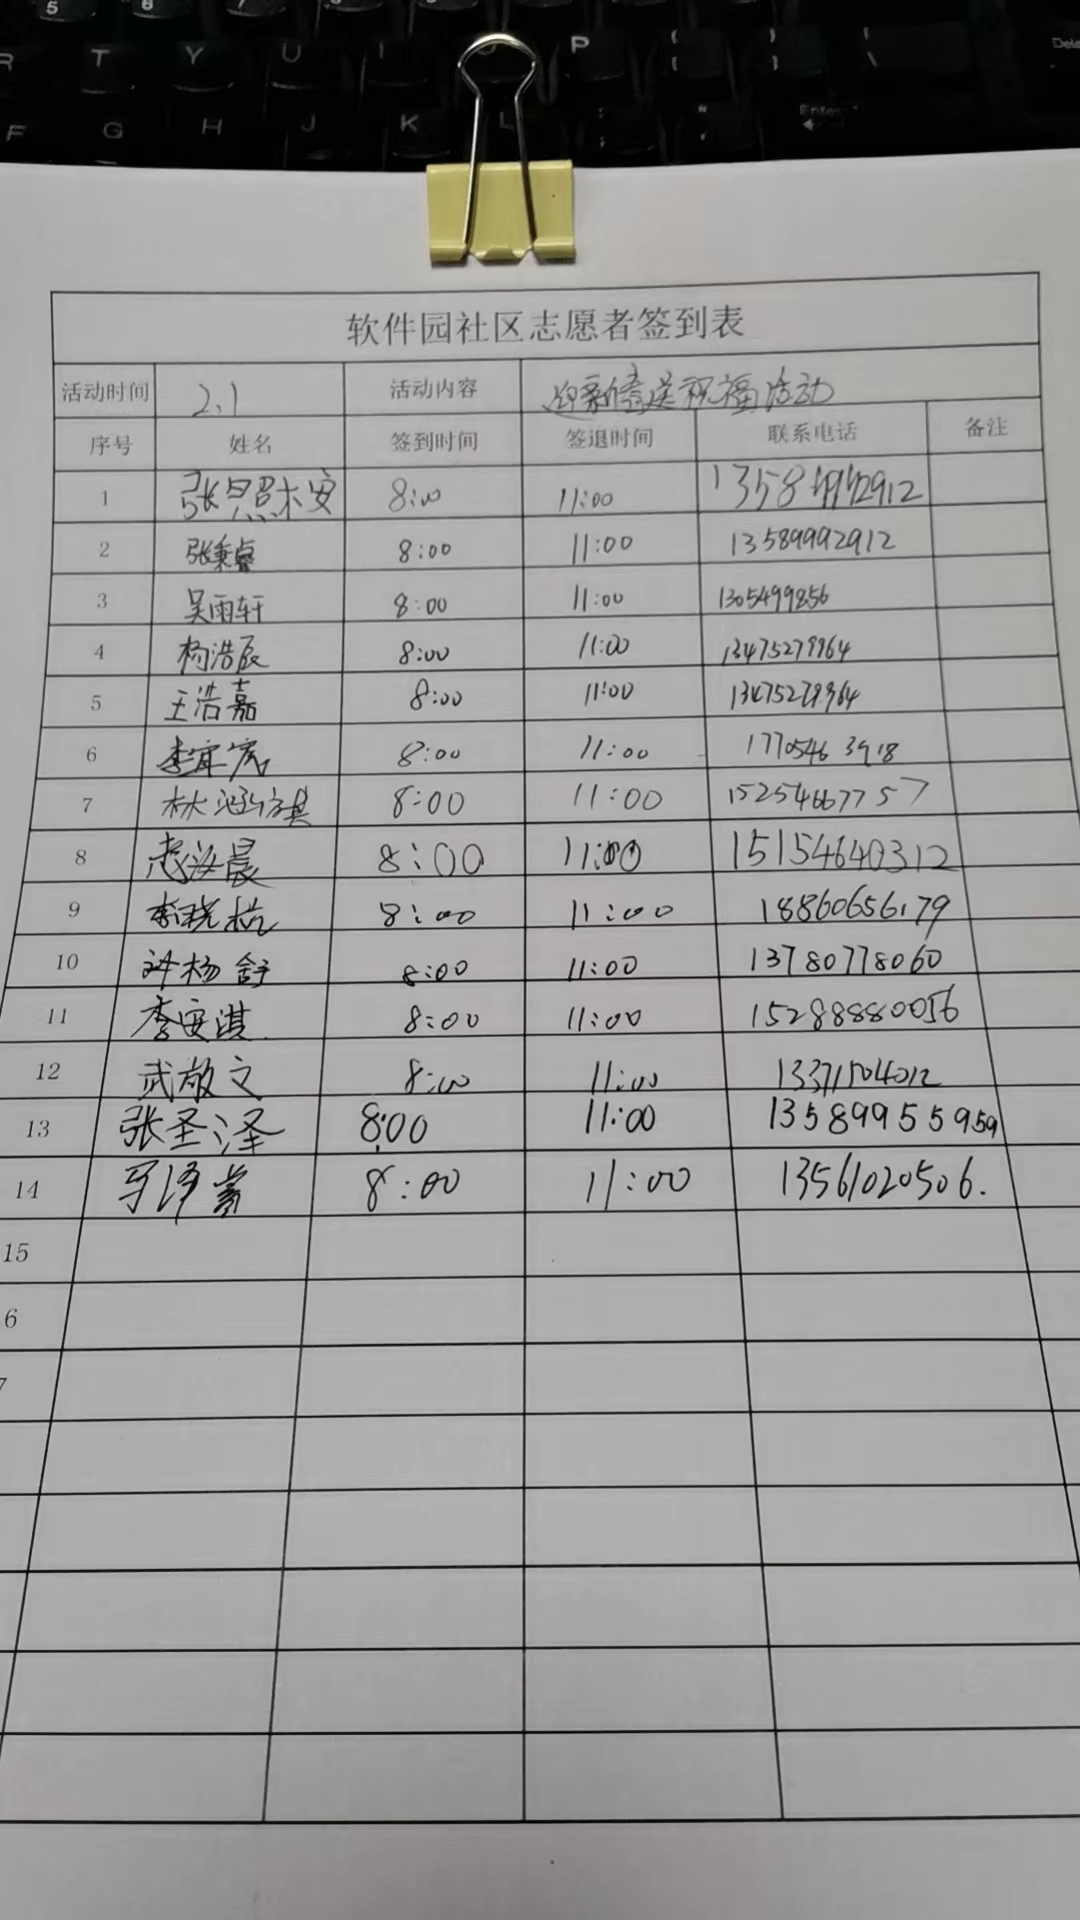 软件园社区志愿者签到表
活动时间 2.1 活动内容 迎新春送祝福活动
序号 姓名 签到时间 签退时间 联系电话 备注
1 张 8:00 11:00
2 张秉睿 8:00 11:00 13589992912
3 吴雨轩 8:00 11:00 1305499856
4 杨浩辰 8:00 11:00 13475279964
5 王浩嘉 8:00 11:00 13475279964
6 李宜宸 8:00 11:00 17705463918
7 林涵琪 8:00 11:00 15254667757
8 8:00 11:00 15154640312
9 李晓航 8:00 11:00 18860656179
10 许杨舒 8:00 11:00 13780778060
11 李安淇 8:00 11:00 15288880056
12 武敬文 8:00 11:00 13371504012
13 张圣泽 8:00 11:00 13589955959
14 8:00 11:00 13561020506.
15
6
7